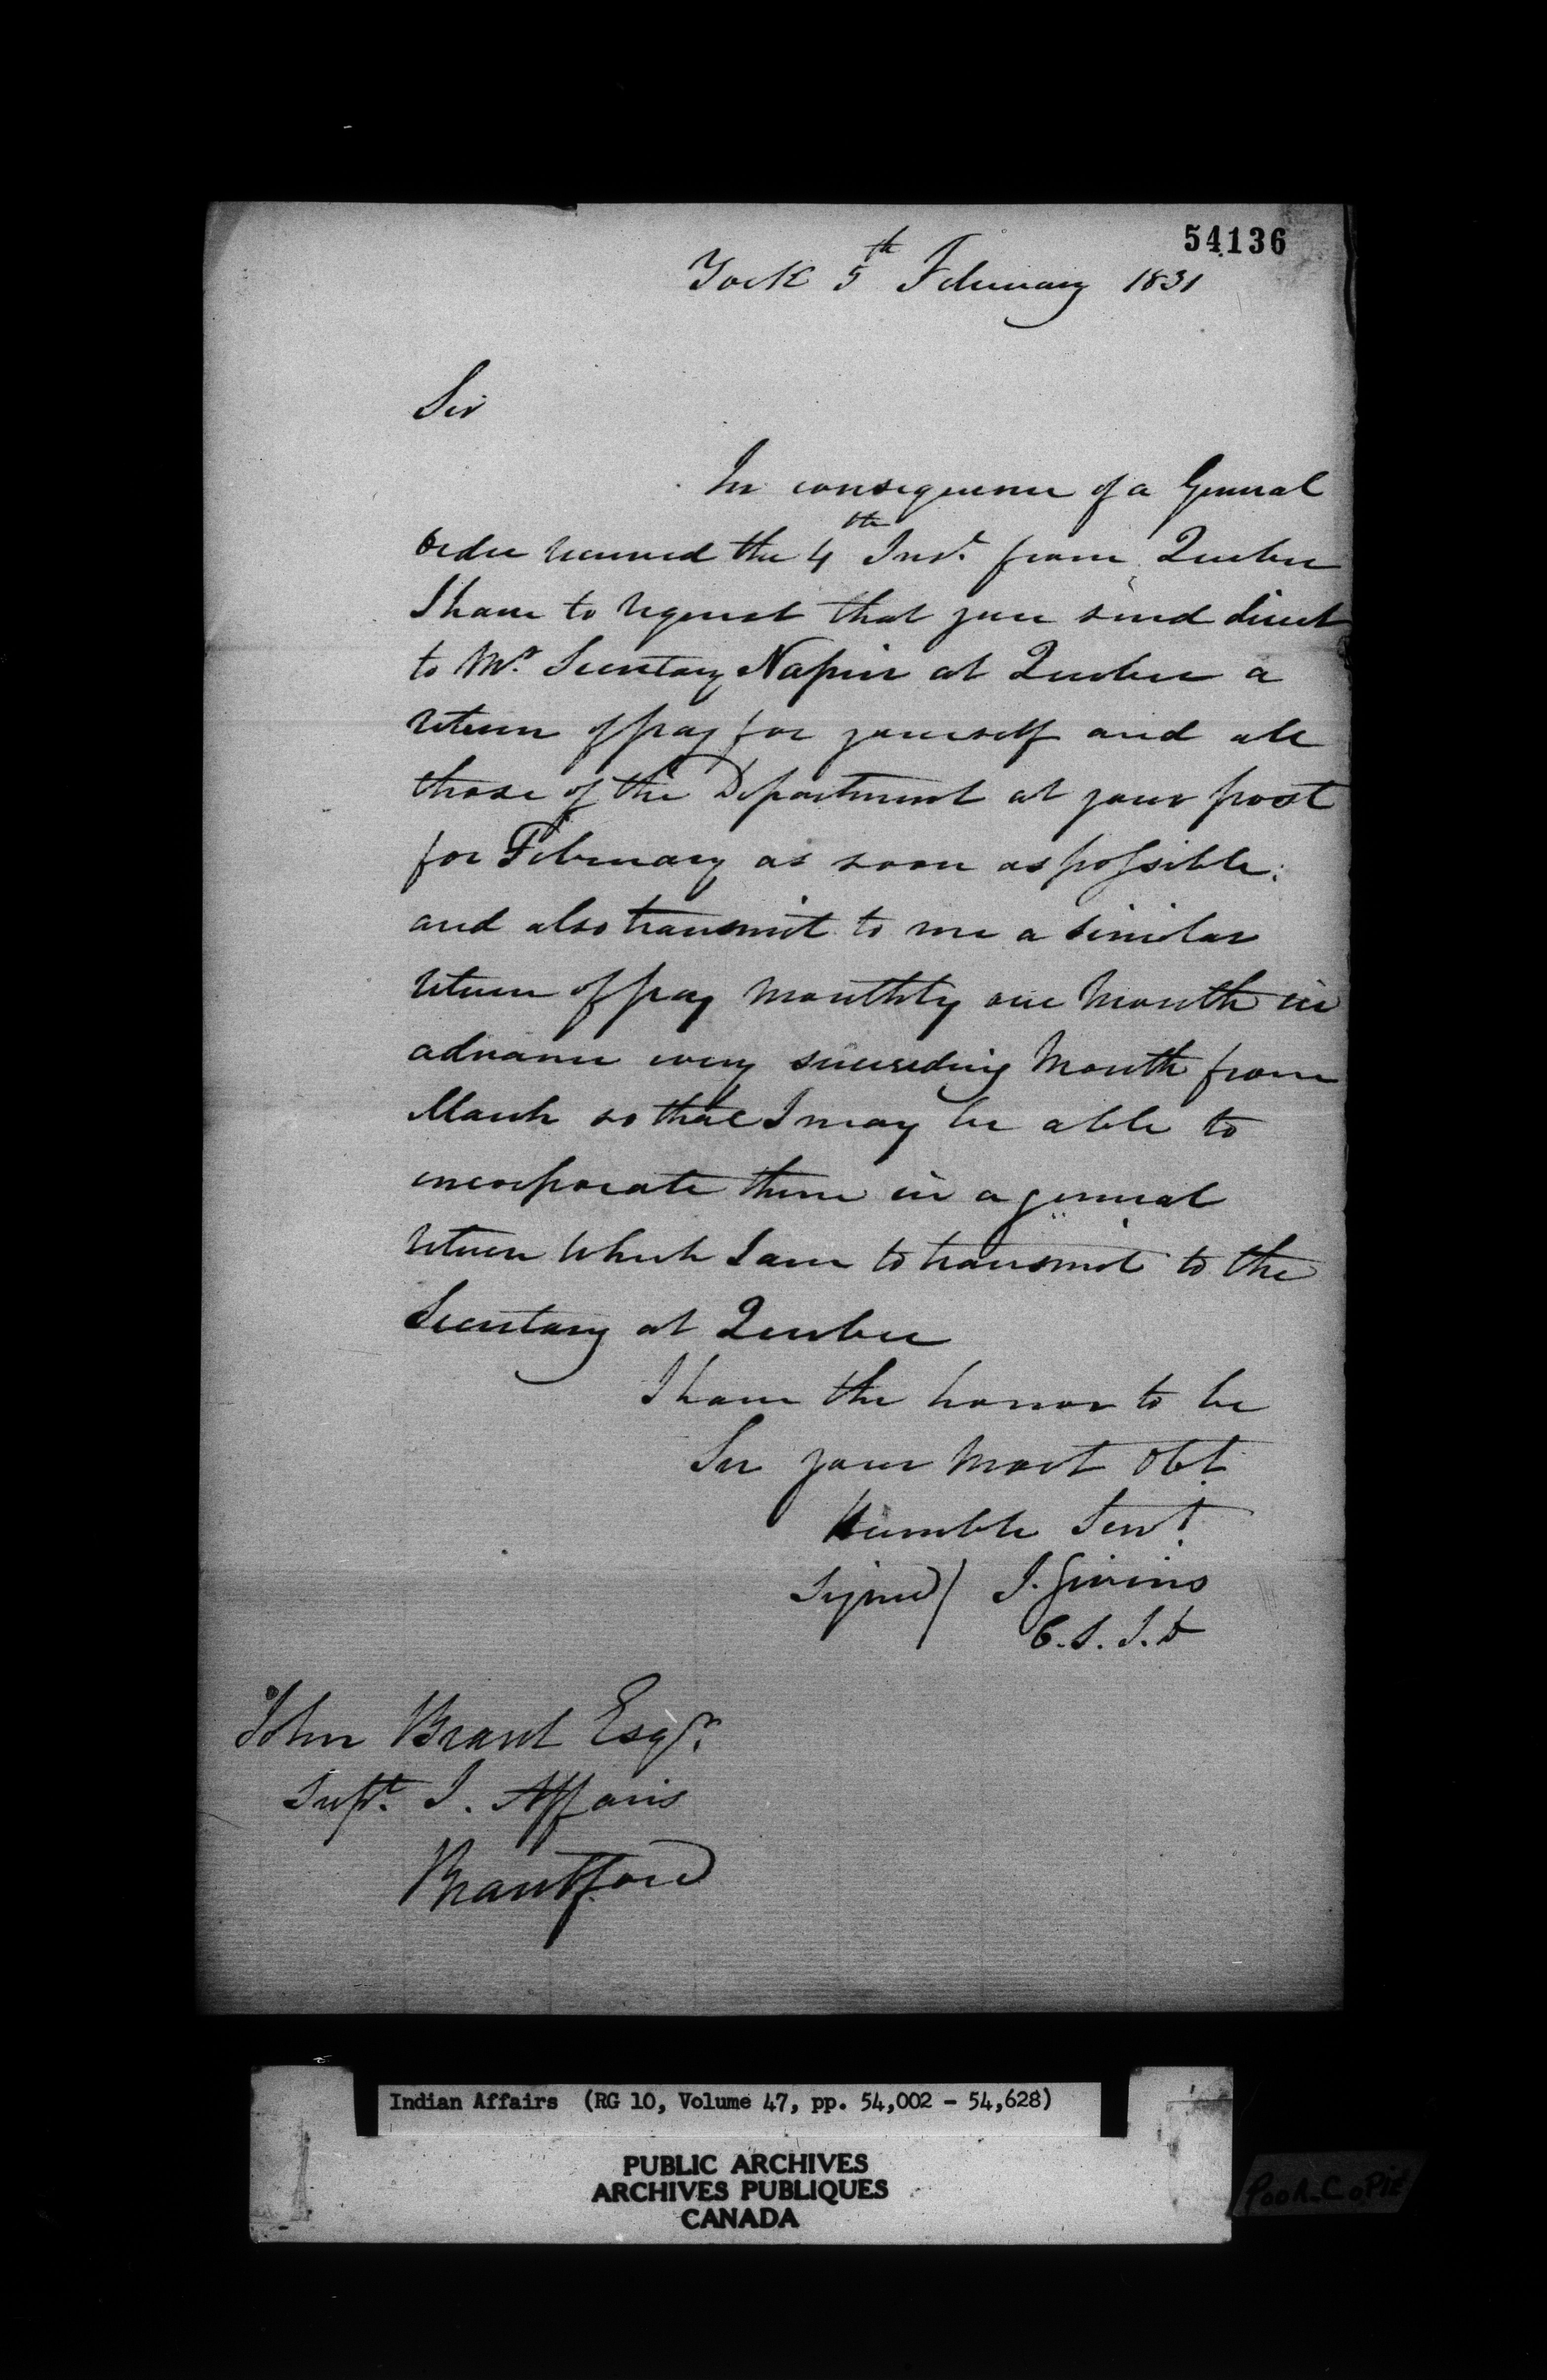 54136
York 5th February 1831
Sir
In consequence of a General
Order received the 4th Inst. from Quebec
I have to request that you send direct
to Mr. Secretary Napier at Quebec a
return of pay for yourself and all
those of the Department at your post
for February as soon as possible.
and also transmit to me a similar
return of pay Monthly one Month in
advance every succeeding Month from
March so that I may be able to
incorporate them in a general
return which I am to transmit to the
Secretary at Quebec
I have the honor to be
Sir your Most Obt.
Humble Servt.
Signed / J. Givins
C.S.I.D
John Brant Esqr.
Supt. I. Affairs
Brantford
Indian Affairs (RG 10, Volume 47, pp. 54,002 - 54,628)
PUBLIC ARCHIVES
ARCHIVES PUBLIQUES
CANADA
Poor Copie